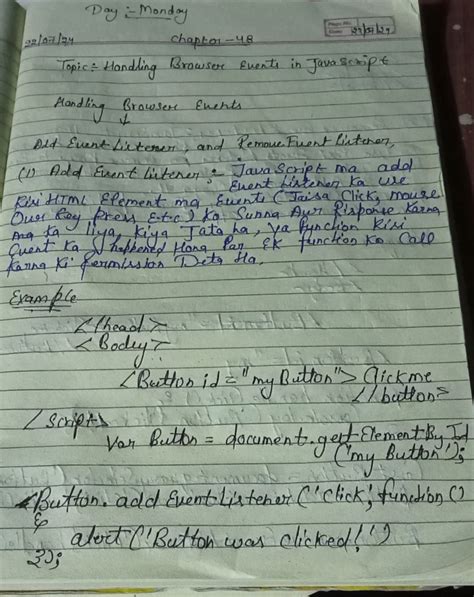 Day :- Monday
Page No.
Date 22/07/24
22/07/24 Chapter-48
Topic :- Handling Browser Events in JavaScript
Handling Browser Events
↓
Add Event Listener, and Remove Event Listener,
(1) Add Event listener :- JavaScript ma add
Event Listener ka use
Kisi HTML Element ma Events (Jaisa Click, mouse
Over Key press E.t.c) Ko Sunna Ayr Risponse Karna
ma ka liya, Kiya Jata ha, ya Function Kisi
Event Ka happened Hona Par Ek function Ko Call
Karna Ki Permission Deta Ha.
Example
</head>
<Body>
<Button id="myButton"> Clickme
</button>
<script>
Var Button = document.get-ElementById
('my Button');
<Button.add EventListener('click', function ()
{
alert ('Button was clicked!')
});